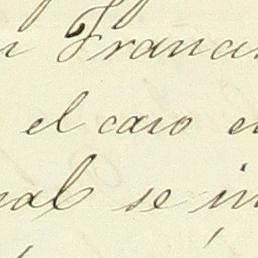 n Franci
el caso e
nal se in